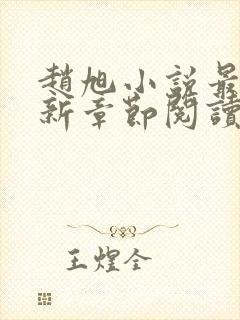 趙旭小說最
新章節閱讀
王煌全